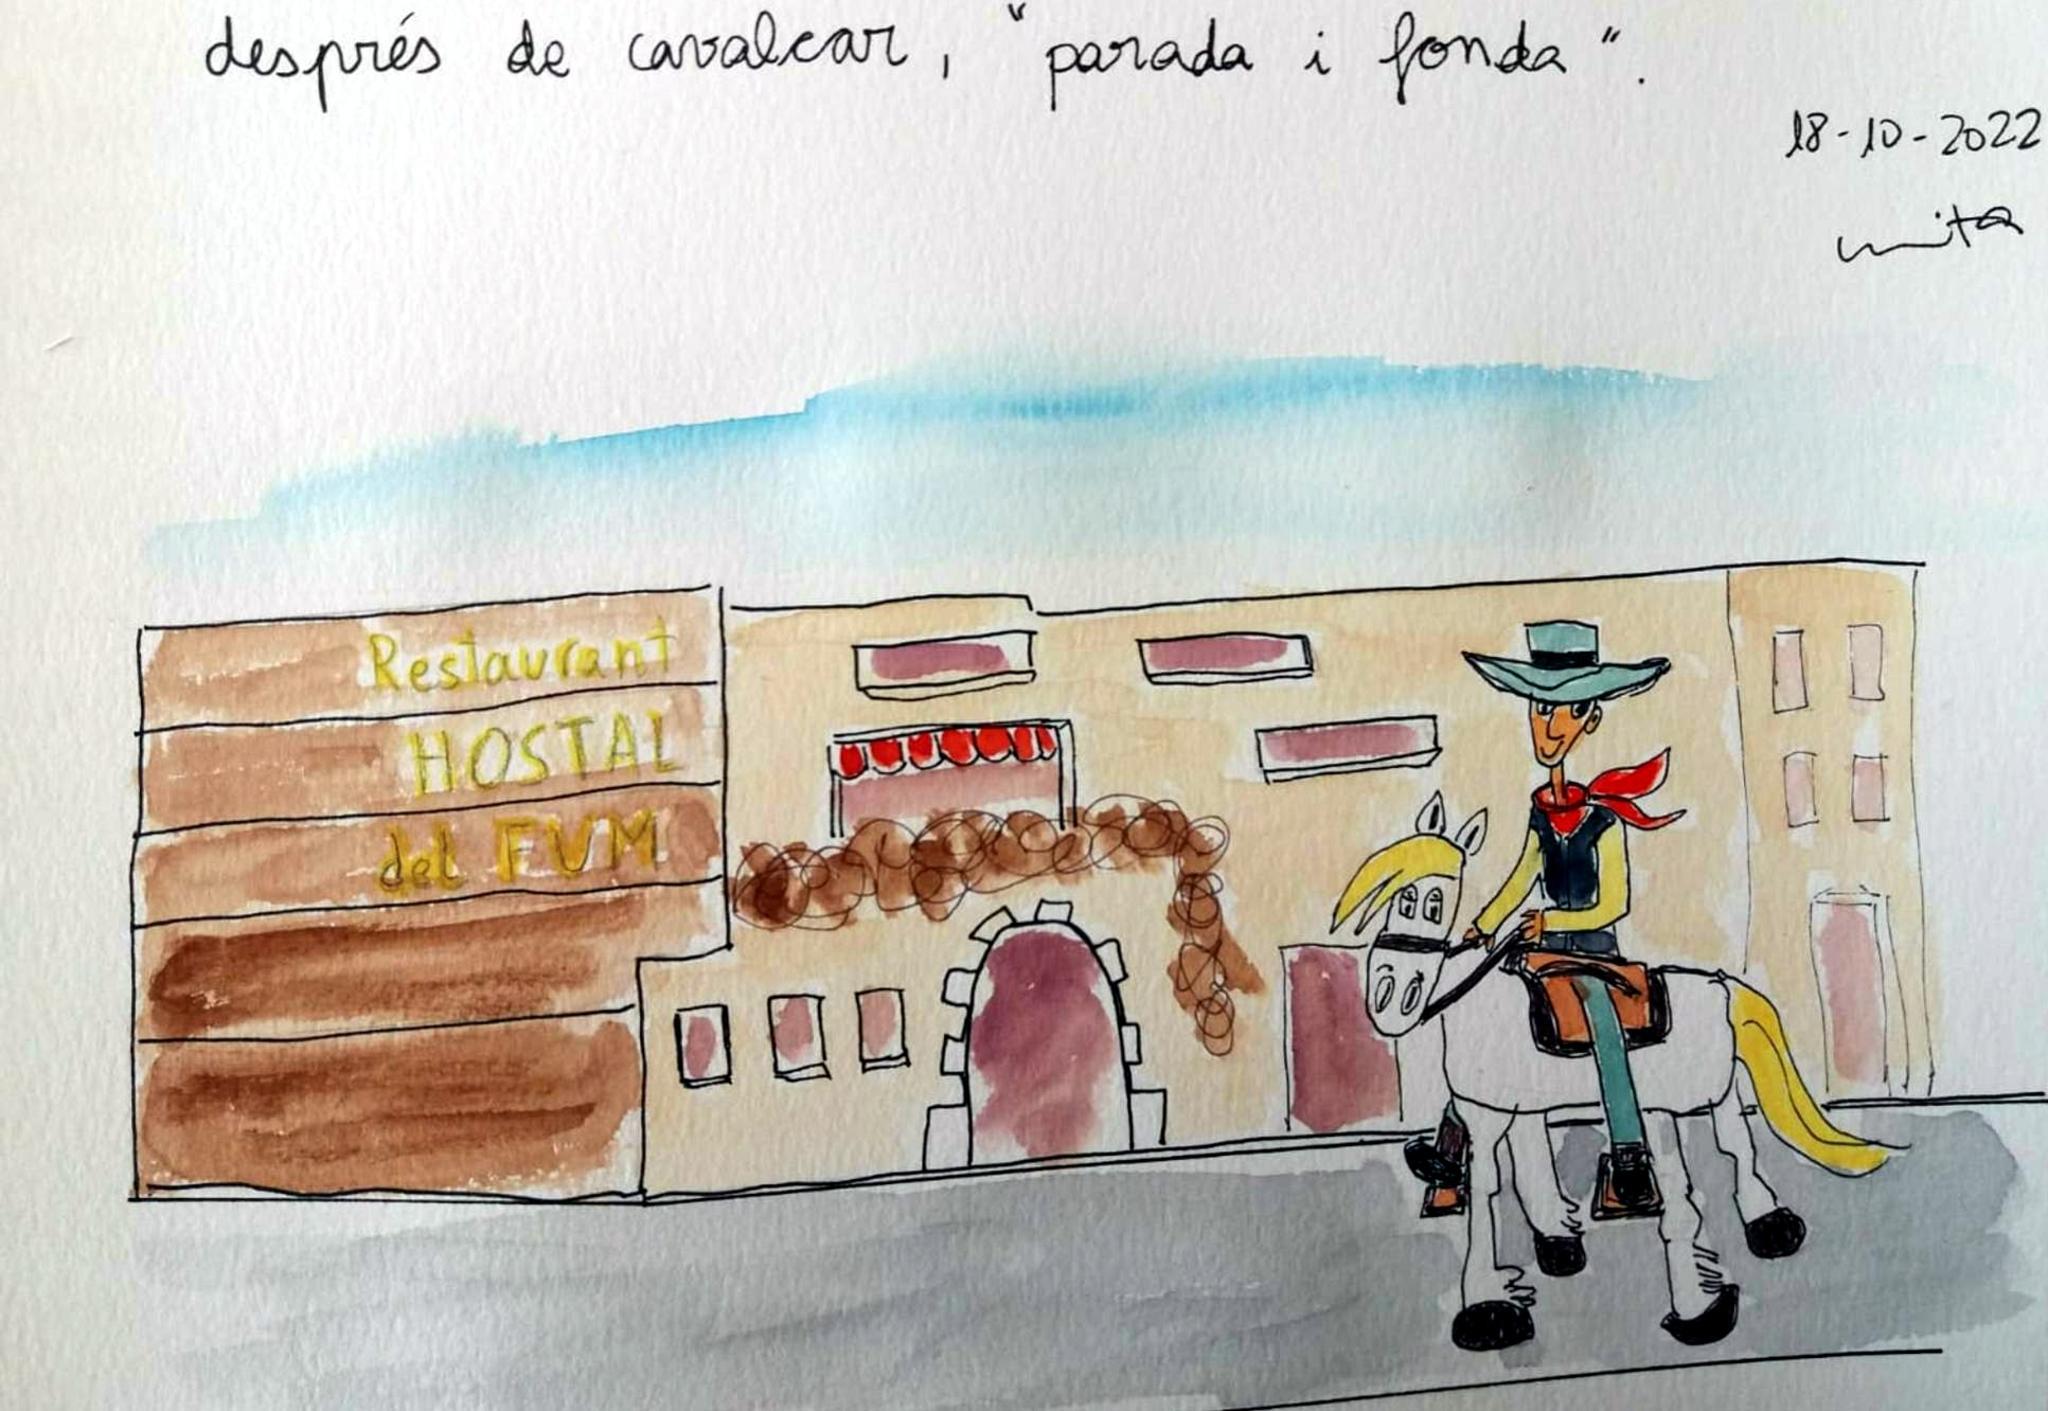 després de cavalcar, "parada i fonda".
18-10-2022
mita
Restaurant
HOSTAL
del FUM